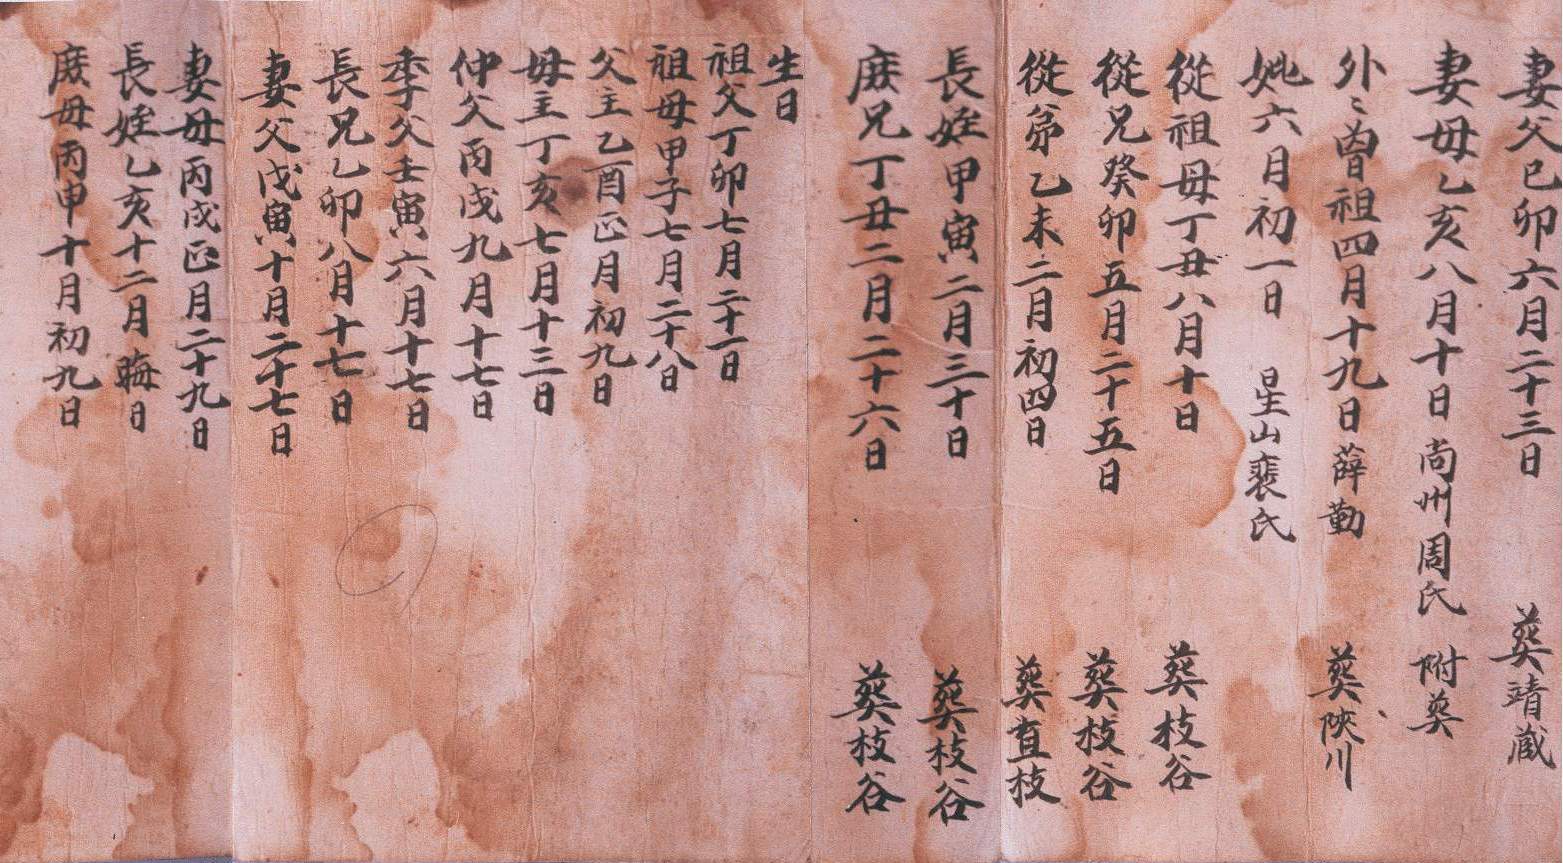 妻父己卯六月二十三日 葬靖藏
妻母乙亥八月十日尙州周氏 附葬
外〻曽祖四月十九日薛勤 葬陜川
妣六月初一日 星山裵氏
從祖母丁丑八月十日 葬枝谷
從兄癸卯五月二十五日 葬枝谷
從弟乙未二月初四日 葬直枝
長姪甲寅二月三十日 葬枝谷
庶兄丁丑二月二十六日 葬枝谷
生日
祖父丁卯七月二十一日
祖母甲子七月二十八日
父主乙酉正月初九日
母主丁亥七月十三日
仲父丙戌九月十七日
季父壬寅六月十七日
長兄乙卯八月十七日
妻父戊寅十月二十七日
妻母丙戌正月二十九日
長姪乙亥十二月晦日
庶母丙申十月初九日